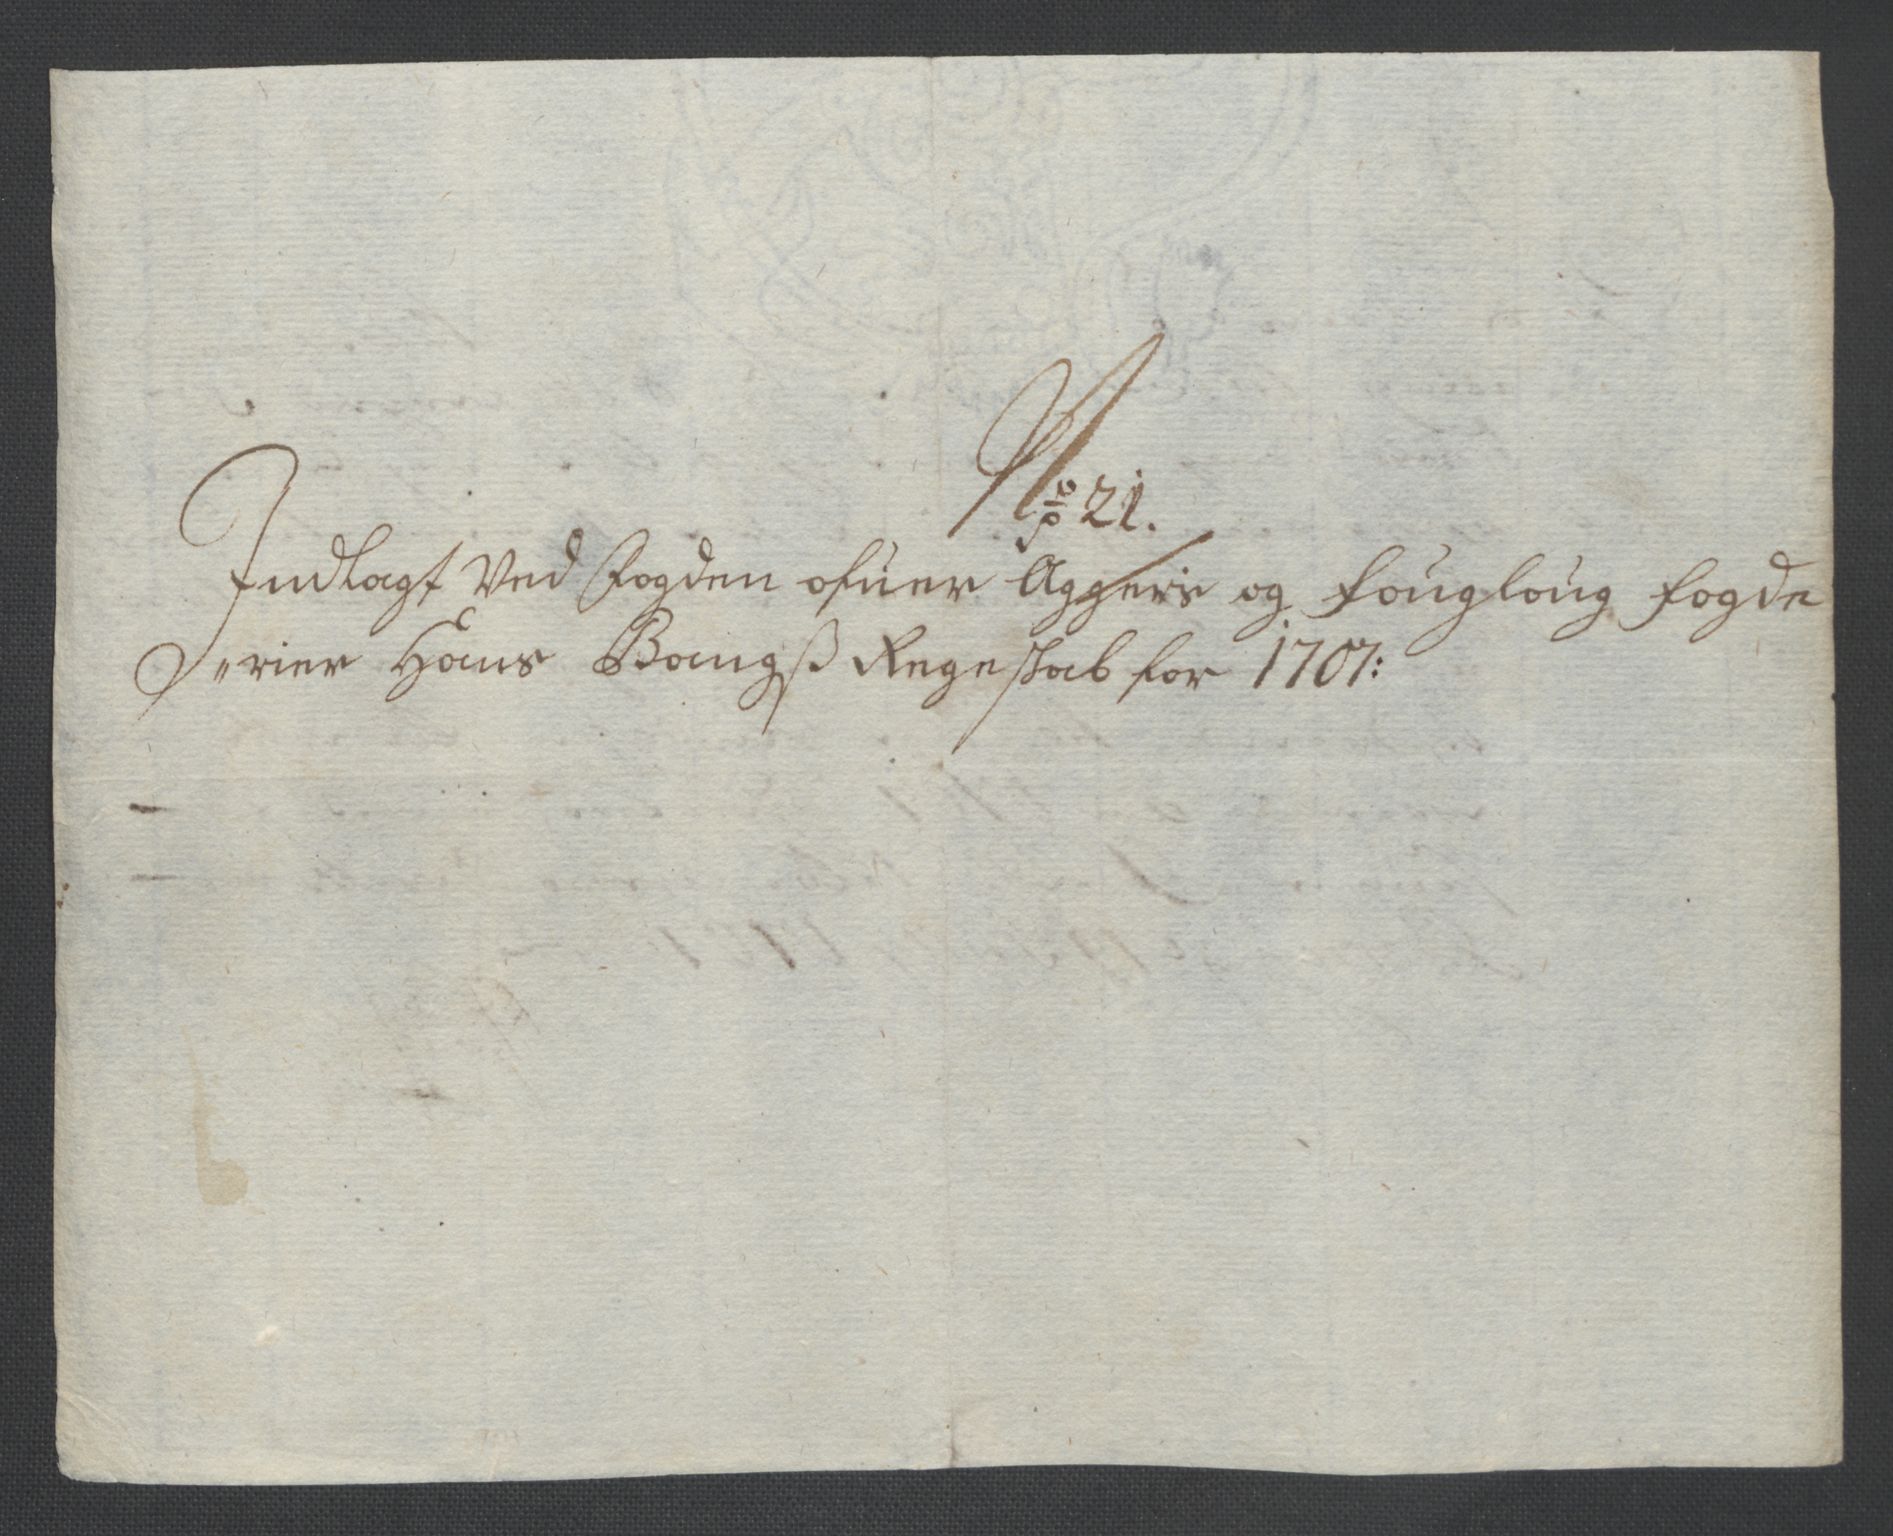 No 21.
Indlagt Ved Fogden ofuer Aggers og fougloug fogde
rier Hans Bangß Regeskab for 1707: